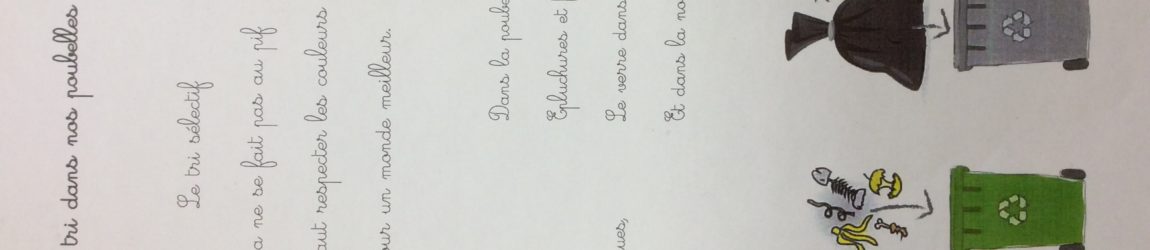 tri dans nos poubelles
Le tri sélectif
a ne se fait pas au pif
aut respecter les couleurs
ur un monde meilleur.
Dans la poube
Epluchures et
Le verre dans
Et dans la no
ues,